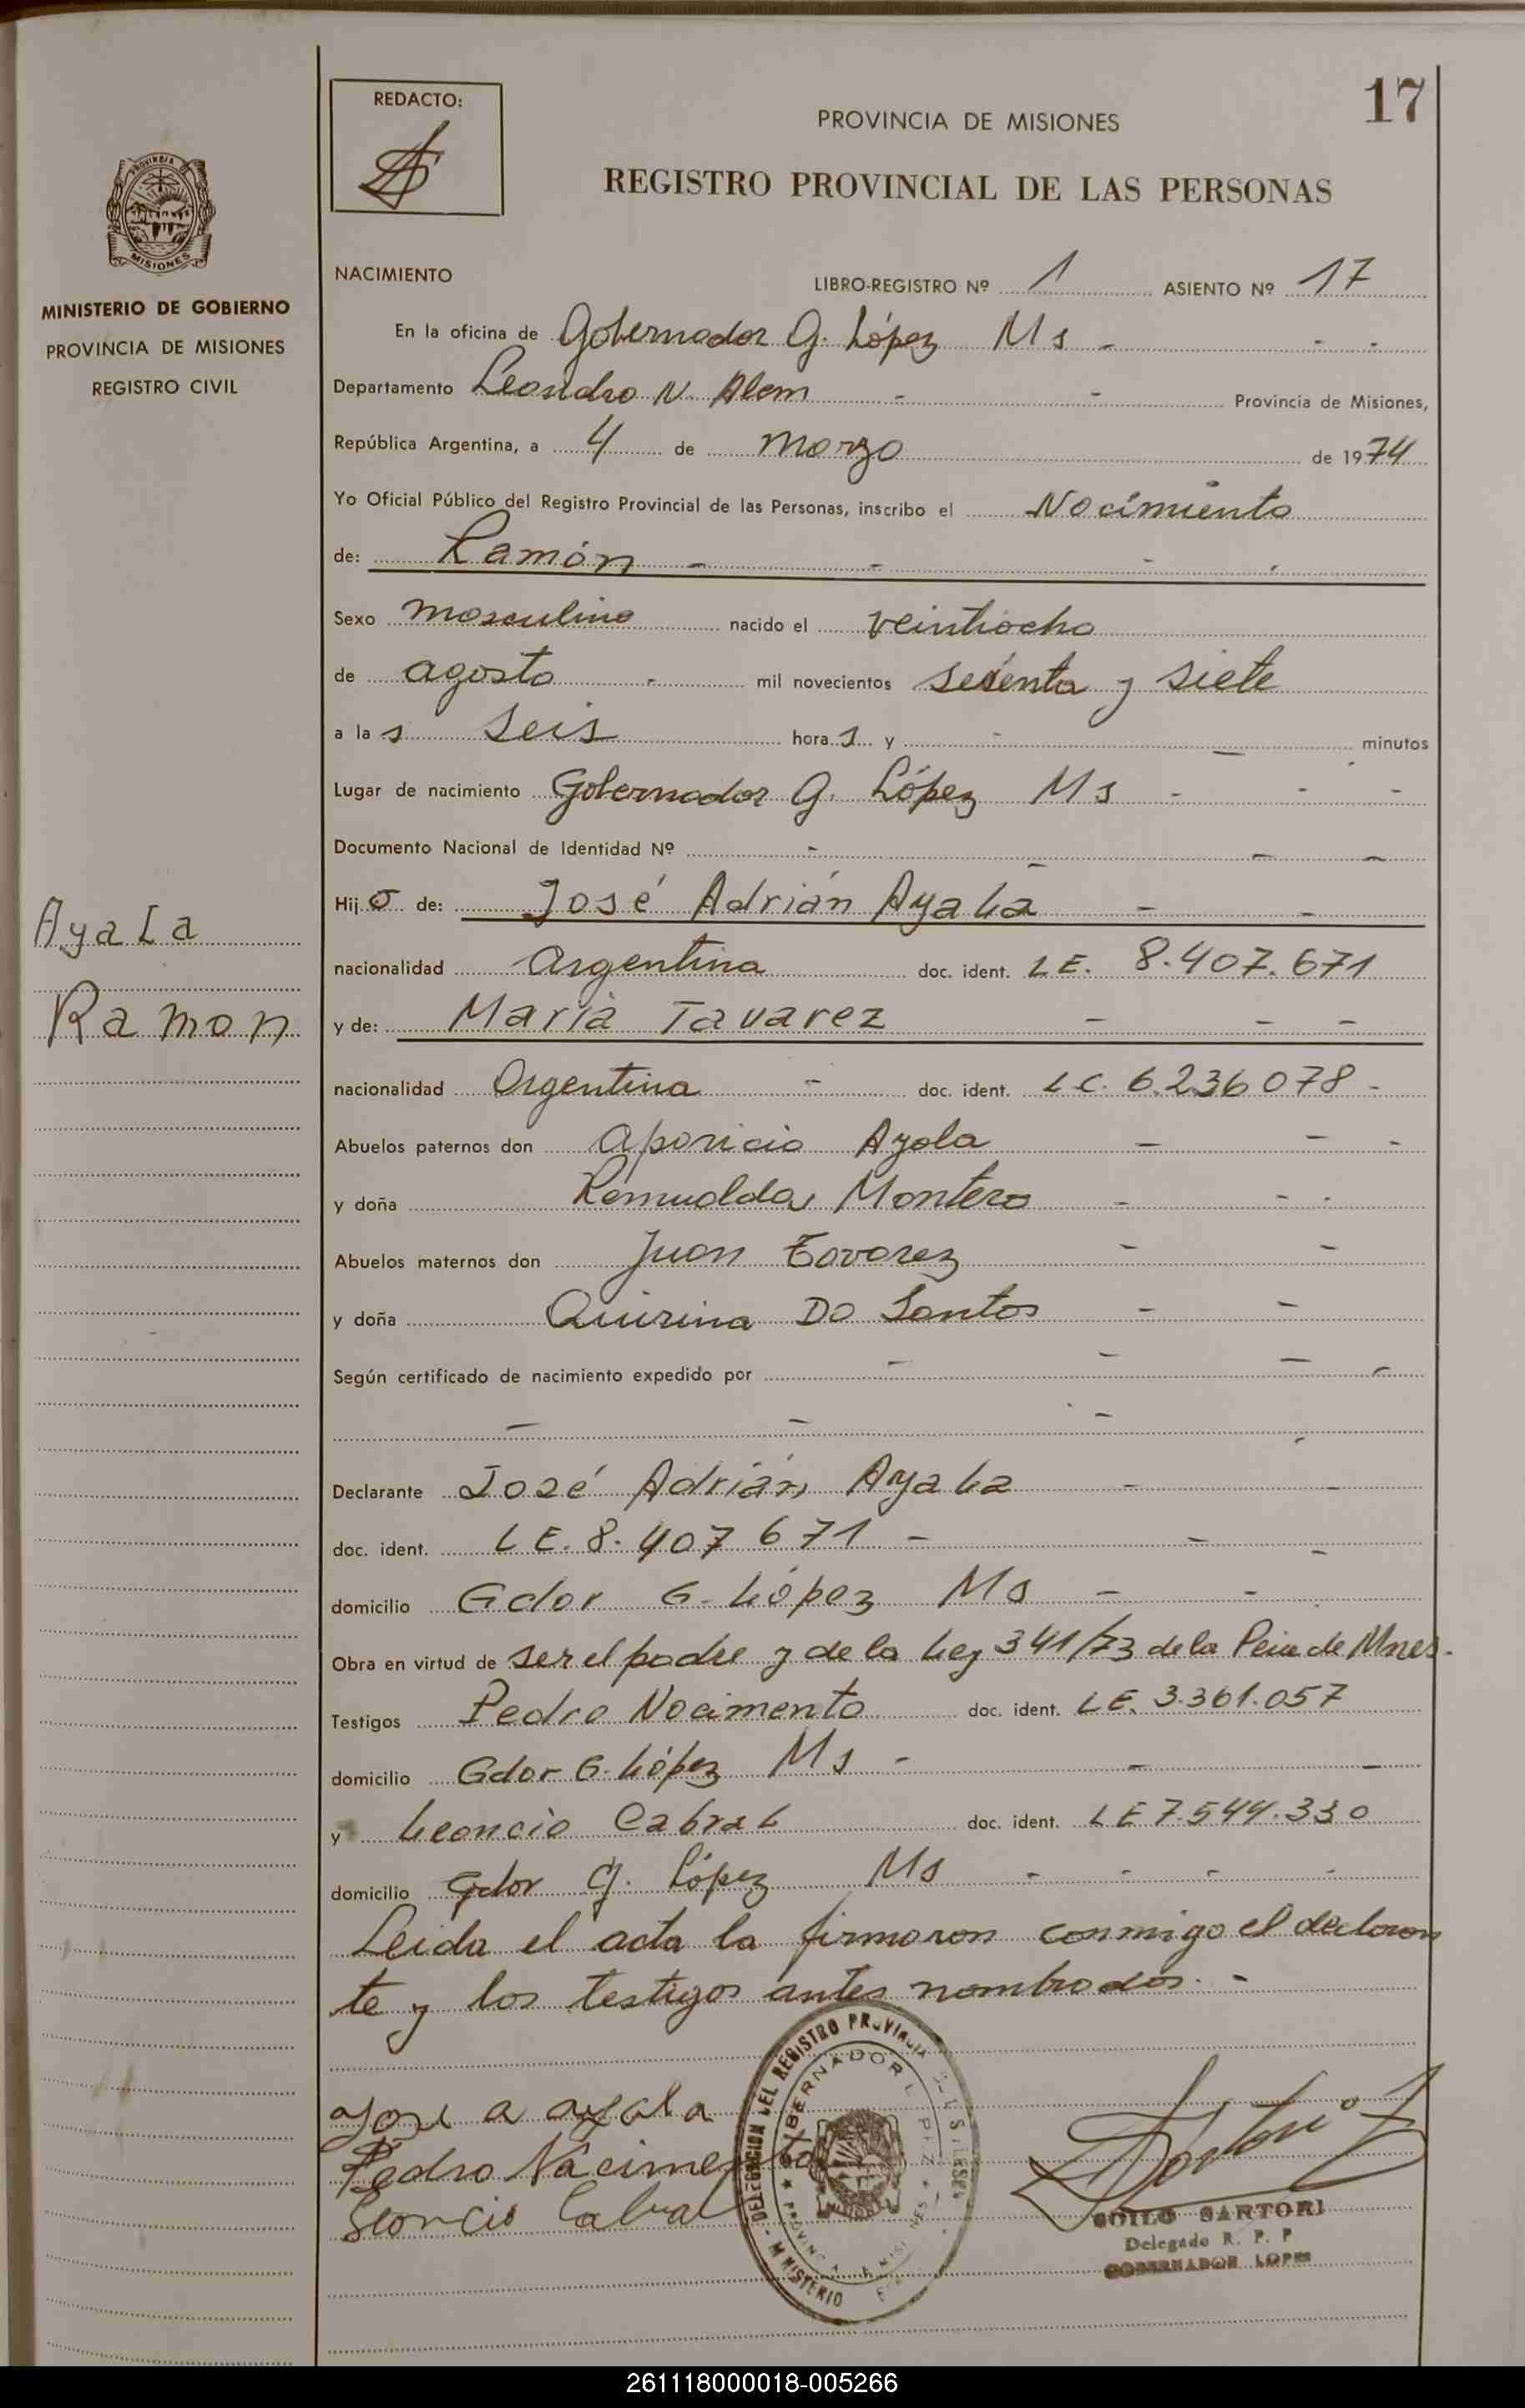 REDACTO:
PROVINCIA DE MISIONES
17
REGISTRO PROVINCIAL DE LAS PERSONAS
PROVINCIA DE
MISIONES
MINISTERIO DE GOBIERNO
PROVINCIA DE MISIONES
REGISTRO CIVIL
NACIMIENTO LIBRO-REGISTRO Nº 1 ASIENTO Nº 17
En la oficina de Gobernador G. López Ms -
Departamento Leandro N. Alem - - Provincia de Misiones,
República Argentina, a 4 de marzo de 1974
Yo Oficial Público del Registro Provincial de las Personas, inscribo el Nacimiento
de: Ramón - -
Sexo masculino nacido el veintiocho
de agosto - mil novecientos sesenta y siete
a las seis horas y - minutos
Lugar de nacimiento Gobernador G. López Ms - - -
Documento Nacional de Identidad Nº - - -
Hijo de: José Adrián Ayala - -
Ayala
nacionalidad Argentina doc. ident. LE. 8.407.671
Ramon
y de: María Tavarez - - -
nacionalidad Argentina - doc. ident. LC. 6.236078 -
Abuelos paternos don Aparicio Ayala - - -
y doña Romualda Montero - - -
Abuelos maternos don Juan Tavarez - -
y doña Quirina Do Santos - -
Según certificado de nacimiento expedido por - - - -
- - -
Declarante José Adrián Ayala - -
doc. ident. LE. 8.407671 - - -
domicilio Gdor G. López Ms - -
Obra en virtud de ser el padre y de la Ley 341/73 de la Pcia de Mnes.
Testigos Pedro Nacimento doc. ident. LE. 3.361.057
domicilio Gdor G. López Ms - - -
y Leoncio Cabral doc. ident. LE 7.544.330
domicilio Gdor G. López Ms - - - -
Leida el acta la firmaron conmigo el declaran
te y los testigos antes nombrados. -
DELEGACION DEL REGISTRO PROVINCIAL
GOBERNADOR LOPEZ
MINISTERIO
Jose a ayala
Pedro Nacimento
Leoncio Cabral
ZOILO SARTORI
Delegado R. P. P
GOBERNADOR LOPEZ
261118000018-005266